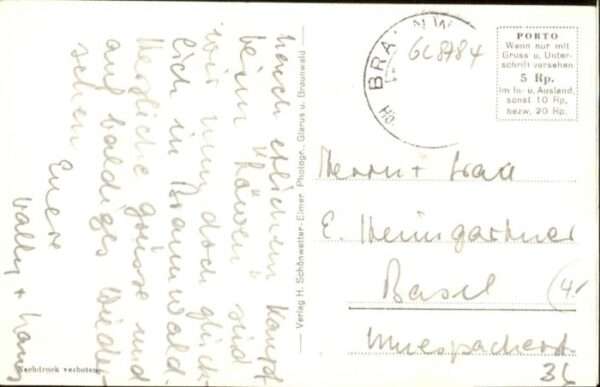 nach etlichem Kampf
beim "Löwen" sind
wir nun doch glück-
lich in Braunwald.
Herzliche Grüsse und
auf baldiges Wieder-
sehen
Euer
Vally + Hans
Nachdruck verboten
Verlag H. Schönwetter-Elmer, Photogr., Glarus u. Braunwald
BRA
6C8784
PORTO
Wenn nur mit
Gruss u. Unter-
schrift versehen
5 Rp.
im In- u. Ausland,
sonst 10 Rp.
bezw. 20 Rp.
Herrn + Frau
E. Heimgartner
Basel